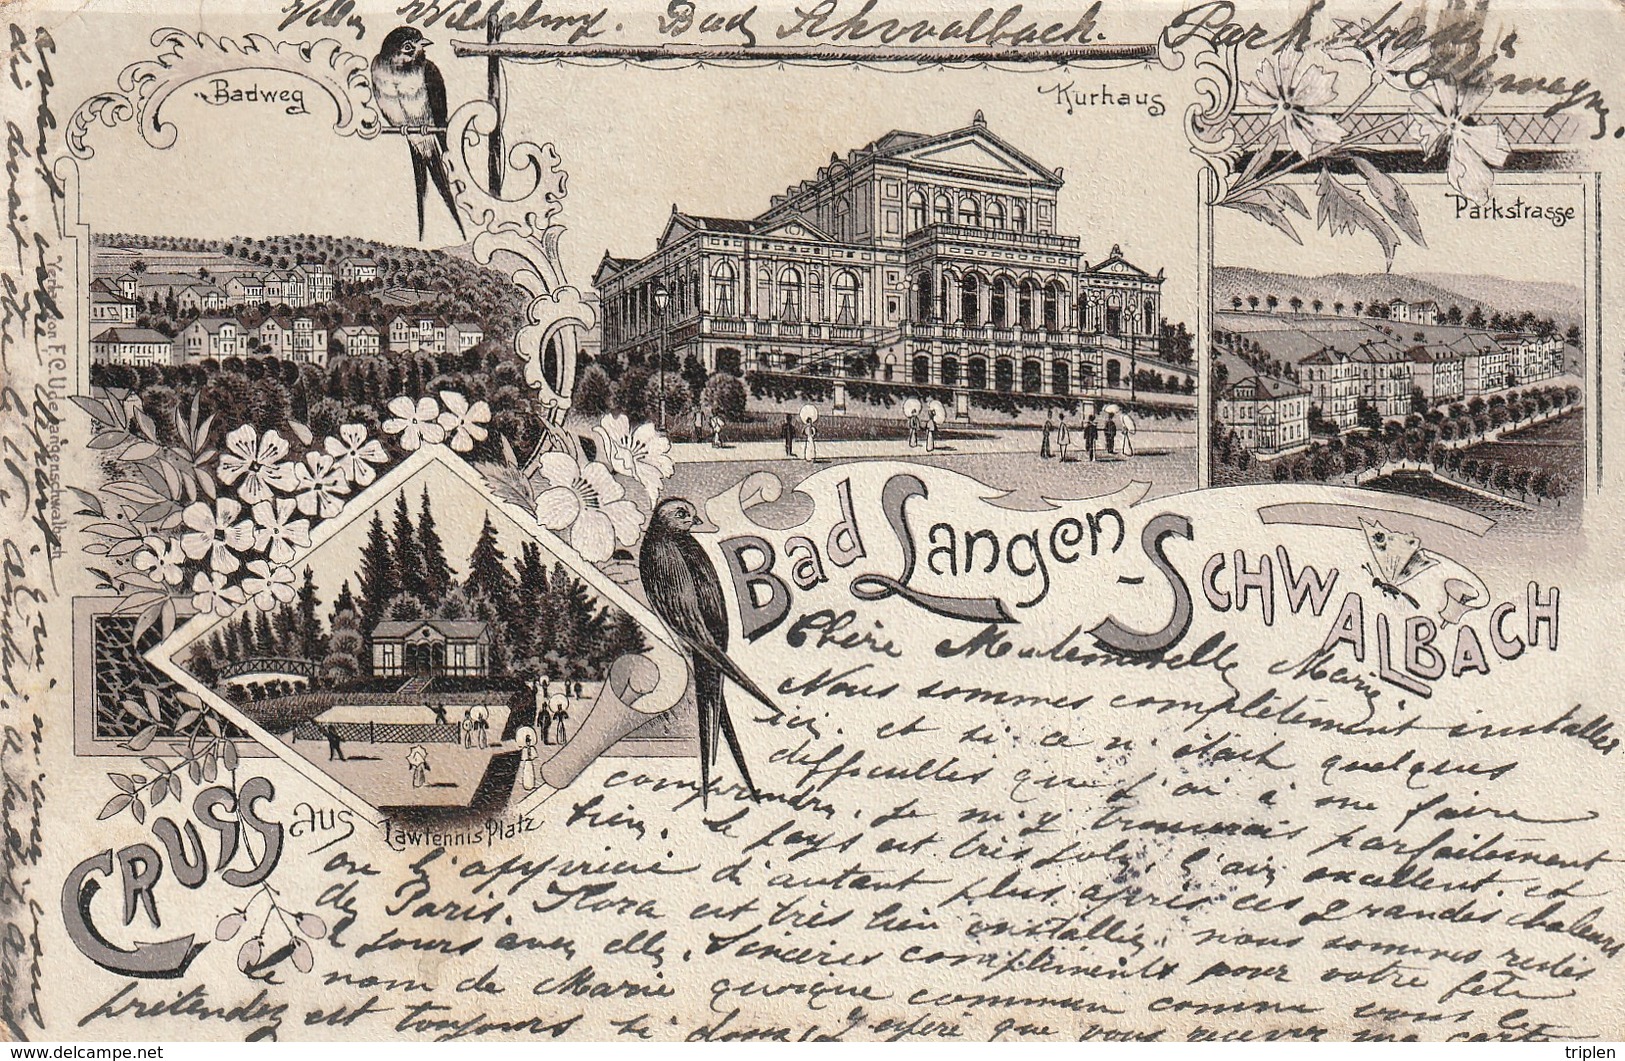 Villa Wilhelmy. Bad Schwalbach. Park strasse
Allemagne.
Badweg
Kurhaus
Parkstrasse
Verlag von F. C. Ude Langenschwalbach
Lawtennis Platz
Gruss aus
Bad Langen-Schwalbach
Chère Mademoiselle Marie,
Nous sommes complètement installées
ici, et si ce n'était quelques
difficultés que j'ai à me faire
comprendre, je m'y trouverais parfaitement
bien. Le pays est très joli, l'air excellent. et
on l'apprécie d'autant plus après ces grandes chaleurs
de Paris. Flora est très bien installée, nous sommes restés
2 jours avec elle. Sincères compliments pour votre fête
le nom de Marie quoique commun comme vous le
prétendez est toujours si doux, j'espère que vous recevrez ma carte
avant votre départ